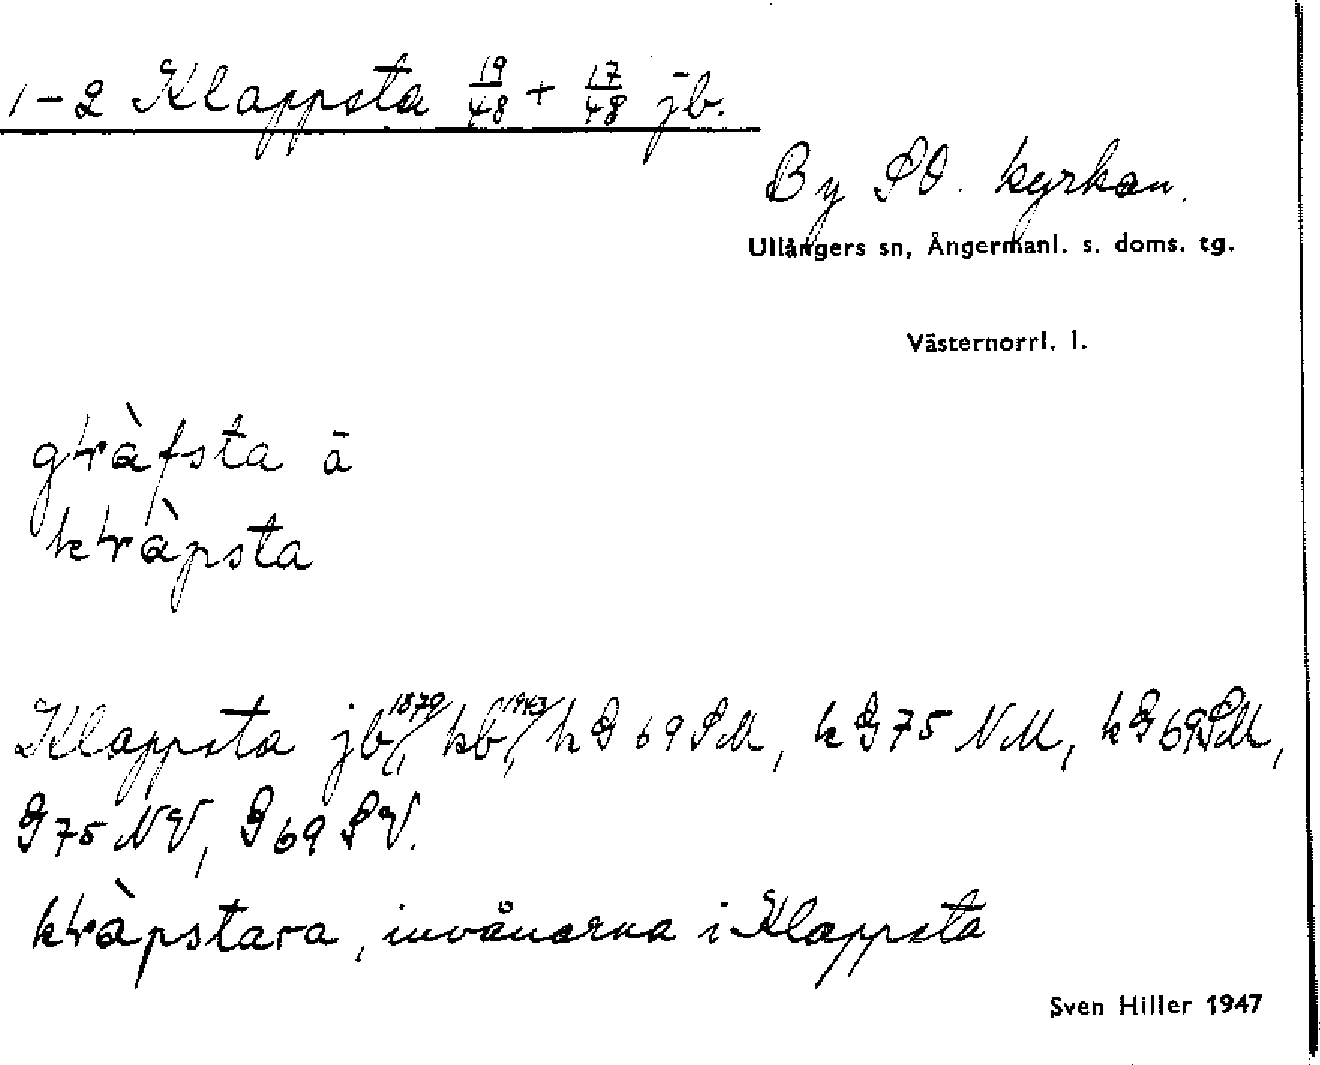 1-2 Klappsta 19/48 + 17/48 jb.
By SO. kyrkan.
Ullångers sn, Ångermanl. s. doms. tg.
Västernorrl. l.
Klappsta jb 1879, kb 1943, k G 69 SM, k G 75 NM, k G 69 SM,
G 75 NV, G 69 SV.
invånarna i Klappsta
Sven Hiller 1947